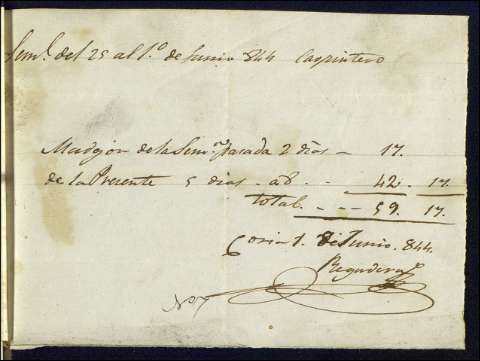 Semª. del 25 al 1º. de Junio 844 Carpintero
de la Semª pasada 2 dias - 17.
de la Presente 5 dias . a 8 . - 42 . 17.
total. - - - 59. 17.
Coria 1. de Junio. 844.
Nº 7